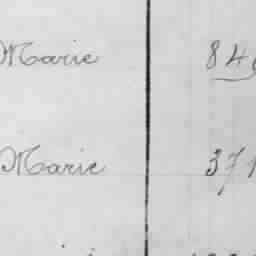 Marie 84
Marie 371